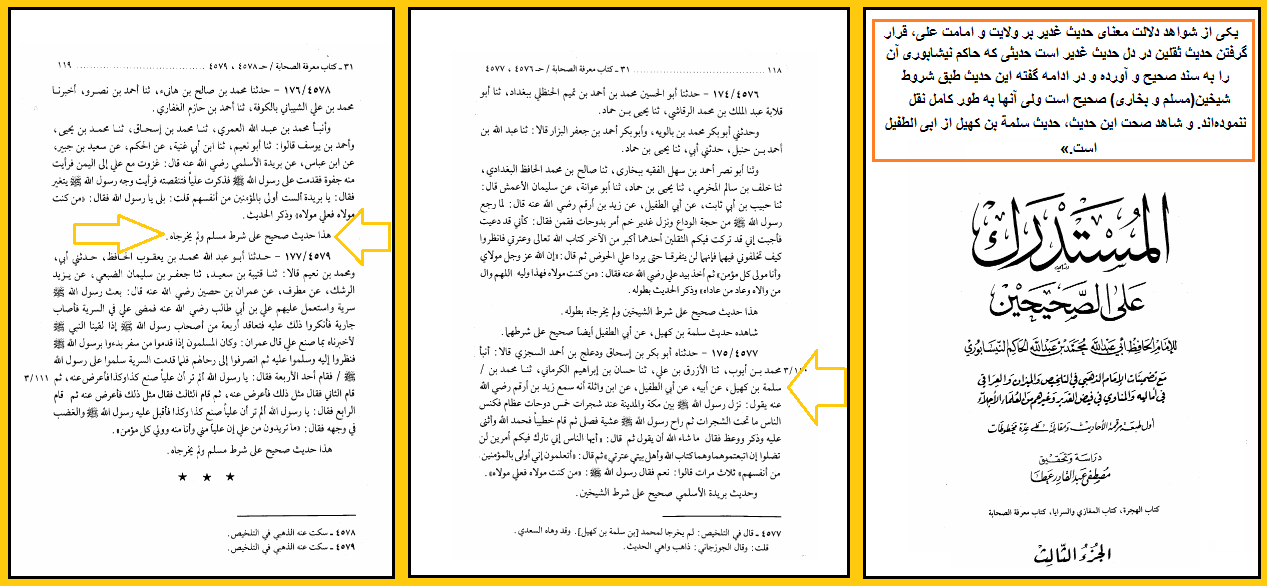 یکی از شواهد دلالت معنای حدیث غدیر بر ولایت و امامت علی، قرار
گرفتن حدیث ثقلین در دل حدیث غدیر است حدیثی که حاکم نیشابوری آن
را به سند صحیح و آورده و در ادامه گفته این حدیث طبق شروط
شیخین(مسلم و بخاری) صحیح است ولی آنها به طور کامل نقل
ننموده‌اند. و شاهد صحت این حدیث، حدیث سلمة بن کهیل از ابی الطفیل
است.»
المستدرك
على الصحيحين
للإمام الحافظ أبي عبد الله محمد بن عبد الله الحاكم النيسابوري
مع تضمينات الإمام الذهبي في التلخيص والميزان والعراقي
في أماليه والمناوي في فيض القدير وغيرهم من العلماء الأجلاء
أول طبعة مرقمة الأحاديث ومقابلة على عدة مخطوطات
دراسة وتحقيق
مصطفى عبد القادر عطا
كتاب الهجرة، كتاب المغازي والسرايا، كتاب معرفة الصحابة
الجزء الثالث
١١٨ ........ ٣١ - كتاب معرفة الصحابة / حـ ٤٥٧٦ ، ٤٥٧٧
١٧٤/٤٥٧٦ - حدثنا أبو الحسين محمد بن أحمد بن تميم الحنظلي ببغداد، ثنا أبو
قلابة عبد الملك بن محمد الرقاشي، ثنا يحيى بن حماد.
وحدثني أبو بكر محمد بن بالويه، وأبو بكر أحمد بن جعفر البزار قالا: ثنا عبد الله بن
أحمد بن حنبل، حدثني أبي، ثنا يحيى بن حماد.
وثنا أبو نصر أحمد بن سهل الفقيه ببخارى، ثنا صالح بن محمد الحافظ البغدادي،
ثنا خلف بن سالم المخرمي، ثنا يحيى بن حماد، ثنا أبو عوانة، عن سليمان الأعمش قال:
ثنا حبيب بن أبي ثابت، عن أبي الطفيل، عن زيد بن أرقم رضي الله عنه قال: لما رجع
رسول الله ﷺ من حجة الوداع ونزل غدير خم أمر بدوحات فقمن فقال: كأني قد دعيت
فأجبت إني قد تركت فيكم الثقلين أحدهما أكبر من الآخر كتاب الله تعالى وعترتي فانظروا
كيف تخلفوني فيهما فإنهما لن يتفرقا حتى يردا علي الحوض ثم قال: «إن الله عز وجل مولاي
وأنا مولى كل مؤمن» ثم أخذ بيد علي رضي الله عنه فقال: «من كنت مولاه فهذا وليه اللهم وال
من والاه وعاد من عاداه» وذكر الحديث بطوله.
هذا حديث صحيح على شرط الشيخين ولم يخرجاه بطوله.
شاهده حديث سلمة بن كهيل، عن أبي الطفيل أيضاً صحيح على شرطهما.
١٧٥/٤٥٧٧ - حدثناه أبو بكر بن إسحاق ودعلج بن أحمد السجزي قالا: أنبأ
محمد بن أيوب، ثنا الأزرق بن علي، ثنا حسان بن إبراهيم الكرماني، ثنا محمد بن /
سلمة بن كهيل، عن أبيه، عن أبي الطفيل، عن ابن واثلة أنه سمع زيد بن أرقم رضي الله
عنه يقول: نزل رسول الله ﷺ بين مكة والمدينة عند شجرات خمس دوحات عظام فكنس
الناس ما تحت الشجرات ثم راح رسول الله ﷺ عشية فصلى ثم قام خطيباً فحمد الله وأثنى
عليه وذكر ووعظ فقال ما شاء الله أن يقول ثم قال: «أيها الناس إني تارك فيكم أمرين لن
تضلوا إن اتبعتموهما وهما كتاب الله وأهل بيتي عترتي» ثم قال: «أتعلمون إني أولى بالمؤمنين
من أنفسهم» ثلاث مرات قالوا: نعم فقال رسول الله ﷺ: «من كنت مولاه فعلي مولاه».
وحديث بريدة الأسلمي صحيح على شرط الشيخين.
٤٥٧٧ - قال في التلخيص: لم يخرجا لمحمد [بن سلمة بن كهيل]. وقد وهاه السعدي.
قلت: وقال الجوزجاني: ذاهب واهي الحديث.
٣١ - كتاب معرفة الصحابة / حـ ٤٥٧٨ ، ٤٥٧٩ ........ ١١٩
١٧٦/٤٥٧٨ - حدثنا محمد بن صالح بن هانىء، ثنا أحمد بن نصرو، أخبرنا
محمد بن علي الشيباني بالكوفة، ثنا أحمد بن حازم الغفاري.
وأنبأ محمد بن عبد الله العمري، ثنا محمد بن إسحاق، ثنا محمد بن يحيى،
وأحمد بن يوسف قالوا: ثنا أبو نعيم، ثنا ابن أبي غنية، عن الحكم، عن سعيد بن جبير،
عن ابن عباس، عن بريدة الأسلمي رضي الله عنه قال: غزوت مع علي إلى اليمن فرأيت
منه جفوة فقدمت على رسول الله ﷺ فذكرت علياً فتنقصته فرأيت وجه رسول الله ﷺ يتغير
فقال: يا بريدة ألست أولى بالمؤمنين من أنفسهم قلت: بلى يا رسول الله فقال: «من كنت
مولاه فعلي مولاه» وذكر الحديث.
هذا حديث صحيح على شرط مسلم ولم يخرجاه.
١٧٧/٤٥٧٩ - حدثنا أبو عبد الله محمد بن يعقوب الحافظ، حدثني أبي،
ومحمد بن نعيم قالا: ثنا قتيبة بن سعيد، ثنا جعفر بن سليمان الضبعي، عن يزيد
الرشك، عن مطرف، عن عمران بن حصين رضي الله عنه قال: بعث رسول الله ﷺ
سرية واستعمل عليهم علي بن أبي طالب رضي الله عنه فمضى علي في السرية فأصاب
جارية فأنكروا ذلك عليه فتعاقد أربعة من أصحاب رسول الله ﷺ إذا لقينا النبي ﷺ
لأخبرناه بما صنع علي قال عمران: وكان المسلمون إذا قدموا من سفر بدءوا برسول الله ﷺ
فنظروا إليه وسلموا عليه ثم انصرفوا إلى رحالهم فلما قدمت السرية سلموا على رسول الله
ﷺ / فقام أحد الأربعة فقال: يا رسول الله ألم تر أن علياً صنع كذا وكذا فأعرض عنه، ثم ٣/١١١
قام الثاني فقال مثل ذلك فأعرض عنه، ثم قام الثالث فقال مثل ذلك فأعرض عنه ثم قام
الرابع فقال: يا رسول الله ألم تر أن علياً صنع كذا وكذا فأقبل عليه رسول الله ﷺ والغضب
في وجهه فقال: «ما تريدون من علي إن علياً مني وأنا منه وولي كل مؤمن».
هذا حديث صحيح على شرط مسلم ولم يخرجاه.
★ ★ ★
٤٥٧٨ - سكت عنه الذهبي في التلخيص.
٤٥٧٩ - سكت عنه الذهبي في التلخيص.